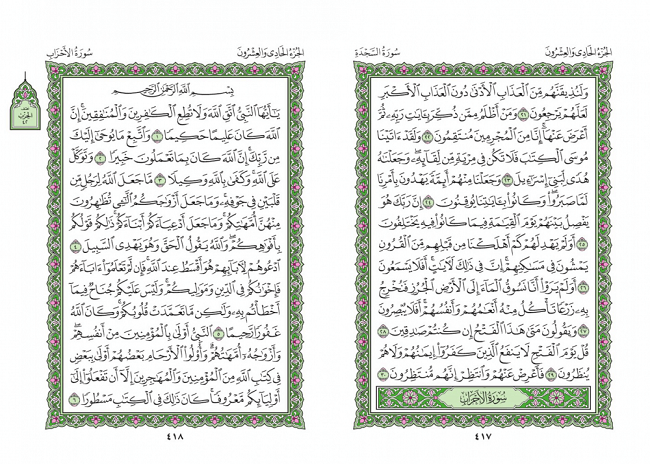 الجزء الحادي والعشرون
سورة السجدة
وَلَنُذِيقَنَّهُم مِّنَ ٱلْعَذَابِ ٱلْأَدْنَىٰ دُونَ ٱلْعَذَابِ ٱلْأَكْبَرِ
لَعَلَّهُمْ يَرْجِعُونَ ٢١ وَمَنْ أَظْلَمُ مِمَّن ذُكِّرَ بِـَٔايَٰتِ رَبِّهِۦ ثُمَّ
أَعْرَضَ عَنْهَآ إِنَّا مِنَ ٱلْمُجْرِمِينَ مُنتَقِمُونَ ٢٢ وَلَقَدْ ءَاتَيْنَا
مُوسَى ٱلْكِتَٰبَ فَلَا تَكُن فِى مِرْيَةٍ مِّن لِّقَآئِهِۦ وَجَعَلْنَٰهُ
هُدًى لِّبَنِىٓ إِسْرَٰٓءِيلَ ٢٣ وَجَعَلْنَا مِنْهُمْ أَئِمَّةً يَهْدُونَ بِأَمْرِنَا
لَمَّا صَبَرُوا۟ وَكَانُوا۟ بِـَٔايَٰتِنَا يُوقِنُونَ ٢٤ إِنَّ رَبَّكَ هُوَ
يَفْصِلُ بَيْنَهُمْ يَوْمَ ٱلْقِيَٰمَةِ فِيمَا كَانُوا۟ فِيهِ يَخْتَلِفُونَ
٢٥ أَوَلَمْ يَهْدِ لَهُمْ كَمْ أَهْلَكْنَا مِن قَبْلِهِم مِّنَ ٱلْقُرُونِ
يَمْشُونَ فِى مَسَٰكِنِهِمْ إِنَّ فِى ذَٰلِكَ لَءَايَٰتٍ أَفَلَا يَسْمَعُونَ
٢٦ أَوَلَمْ يَرَوْا۟ أَنَّا نَسُوقُ ٱلْمَآءَ إِلَى ٱلْأَرْضِ ٱلْجُرُزِ فَنُخْرِجُ
بِهِۦ زَرْعًا تَأْكُلُ مِنْهُ أَنْعَٰمُهُمْ وَأَنفُسُهُمْ أَفَلَا يُبْصِرُونَ
٢٧ وَيَقُولُونَ مَتَىٰ هَٰذَا ٱلْفَتْحُ إِن كُنتُمْ صَٰدِقِينَ ٢٨
قُلْ يَوْمَ ٱلْفَتْحِ لَا يَنفَعُ ٱلَّذِينَ كَفَرُوٓا۟ إِيمَٰنُهُمْ وَلَا هُمْ
يُنظَرُونَ ٢٩ فَأَعْرِضْ عَنْهُمْ وَٱنتَظِرْ إِنَّهُم مُّنتَظِرُونَ ٣٠
سورة الأحزاب
٤١٧
الجزء الحادي والعشرون
سورة الأحزاب
بِسْمِ ٱللَّهِ ٱلرَّحْمَٰنِ ٱلرَّحِيمِ
يَٰٓأَيُّهَا ٱلنَّبِىُّ ٱتَّقِ ٱللَّهَ وَلَا تُطِعِ ٱلْكَٰفِرِينَ وَٱلْمُنَٰفِقِينَ إِنَّ
ٱللَّهَ كَانَ عَلِيمًا حَكِيمًا ١ وَٱتَّبِعْ مَا يُوحَىٰٓ إِلَيْكَ
مِن رَّبِّكَ إِنَّ ٱللَّهَ كَانَ بِمَا تَعْمَلُونَ خَبِيرًا ٢ وَتَوَكَّلْ
عَلَى ٱللَّهِ وَكَفَىٰ بِٱللَّهِ وَكِيلًا ٣ مَّا جَعَلَ ٱللَّهُ لِرَجُلٍ مِّن
قَلْبَيْنِ فِى جَوْفِهِۦ وَمَا جَعَلَ أَزْوَٰجَكُمُ ٱلَّٰٓـِٔى تُظَٰهِرُونَ
مِنْهُنَّ أُمَّهَٰتِكُمْ وَمَا جَعَلَ أَدْعِيَآءَكُمْ أَبْنَآءَكُمْ ذَٰلِكُمْ قَوْلُكُم
بِأَفْوَٰهِكُمْ وَٱللَّهُ يَقُولُ ٱلْحَقَّ وَهُوَ يَهْدِى ٱلسَّبِيلَ ٤
ٱدْعُوهُمْ لِءَابَآئِهِمْ هُوَ أَقْسَطُ عِندَ ٱللَّهِ فَإِن لَّمْ تَعْلَمُوٓا۟ ءَابَآءَهُمْ
فَإِخْوَٰنُكُمْ فِى ٱلدِّينِ وَمَوَٰلِيكُمْ وَلَيْسَ عَلَيْكُمْ جُنَاحٌ فِيمَآ
أَخْطَأْتُم بِهِۦ وَلَٰكِن مَّا تَعَمَّدَتْ قُلُوبُكُمْ وَكَانَ ٱللَّهُ
غَفُورًا رَّحِيمًا ٥ ٱلنَّبِىُّ أَوْلَىٰ بِٱلْمُؤْمِنِينَ مِنْ أَنفُسِهِمْ
وَأَزْوَٰجُهُۥٓ أُمَّهَٰتُهُمْ وَأُو۟لُوا۟ ٱلْأَرْحَامِ بَعْضُهُمْ أَوْلَىٰ بِبَعْضٍ
فِى كِتَٰبِ ٱللَّهِ مِنَ ٱلْمُؤْمِنِينَ وَٱلْمُهَٰجِرِينَ إِلَّآ أَن تَفْعَلُوٓا۟ إِلَىٰٓ
أَوْلِيَآئِكُم مَّعْرُوفًا كَانَ ذَٰلِكَ فِى ٱلْكِتَٰبِ مَسْطُورًا ٦
٤١٨